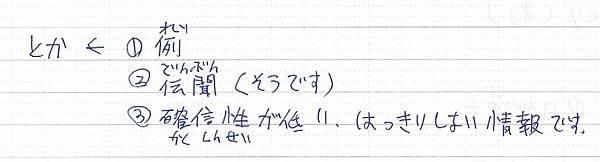 れい
とか ← ① 例
でんぶん
② 伝聞 (そうです)
③ 確信性が低い、はっきりしない情報です。
かく しんせい